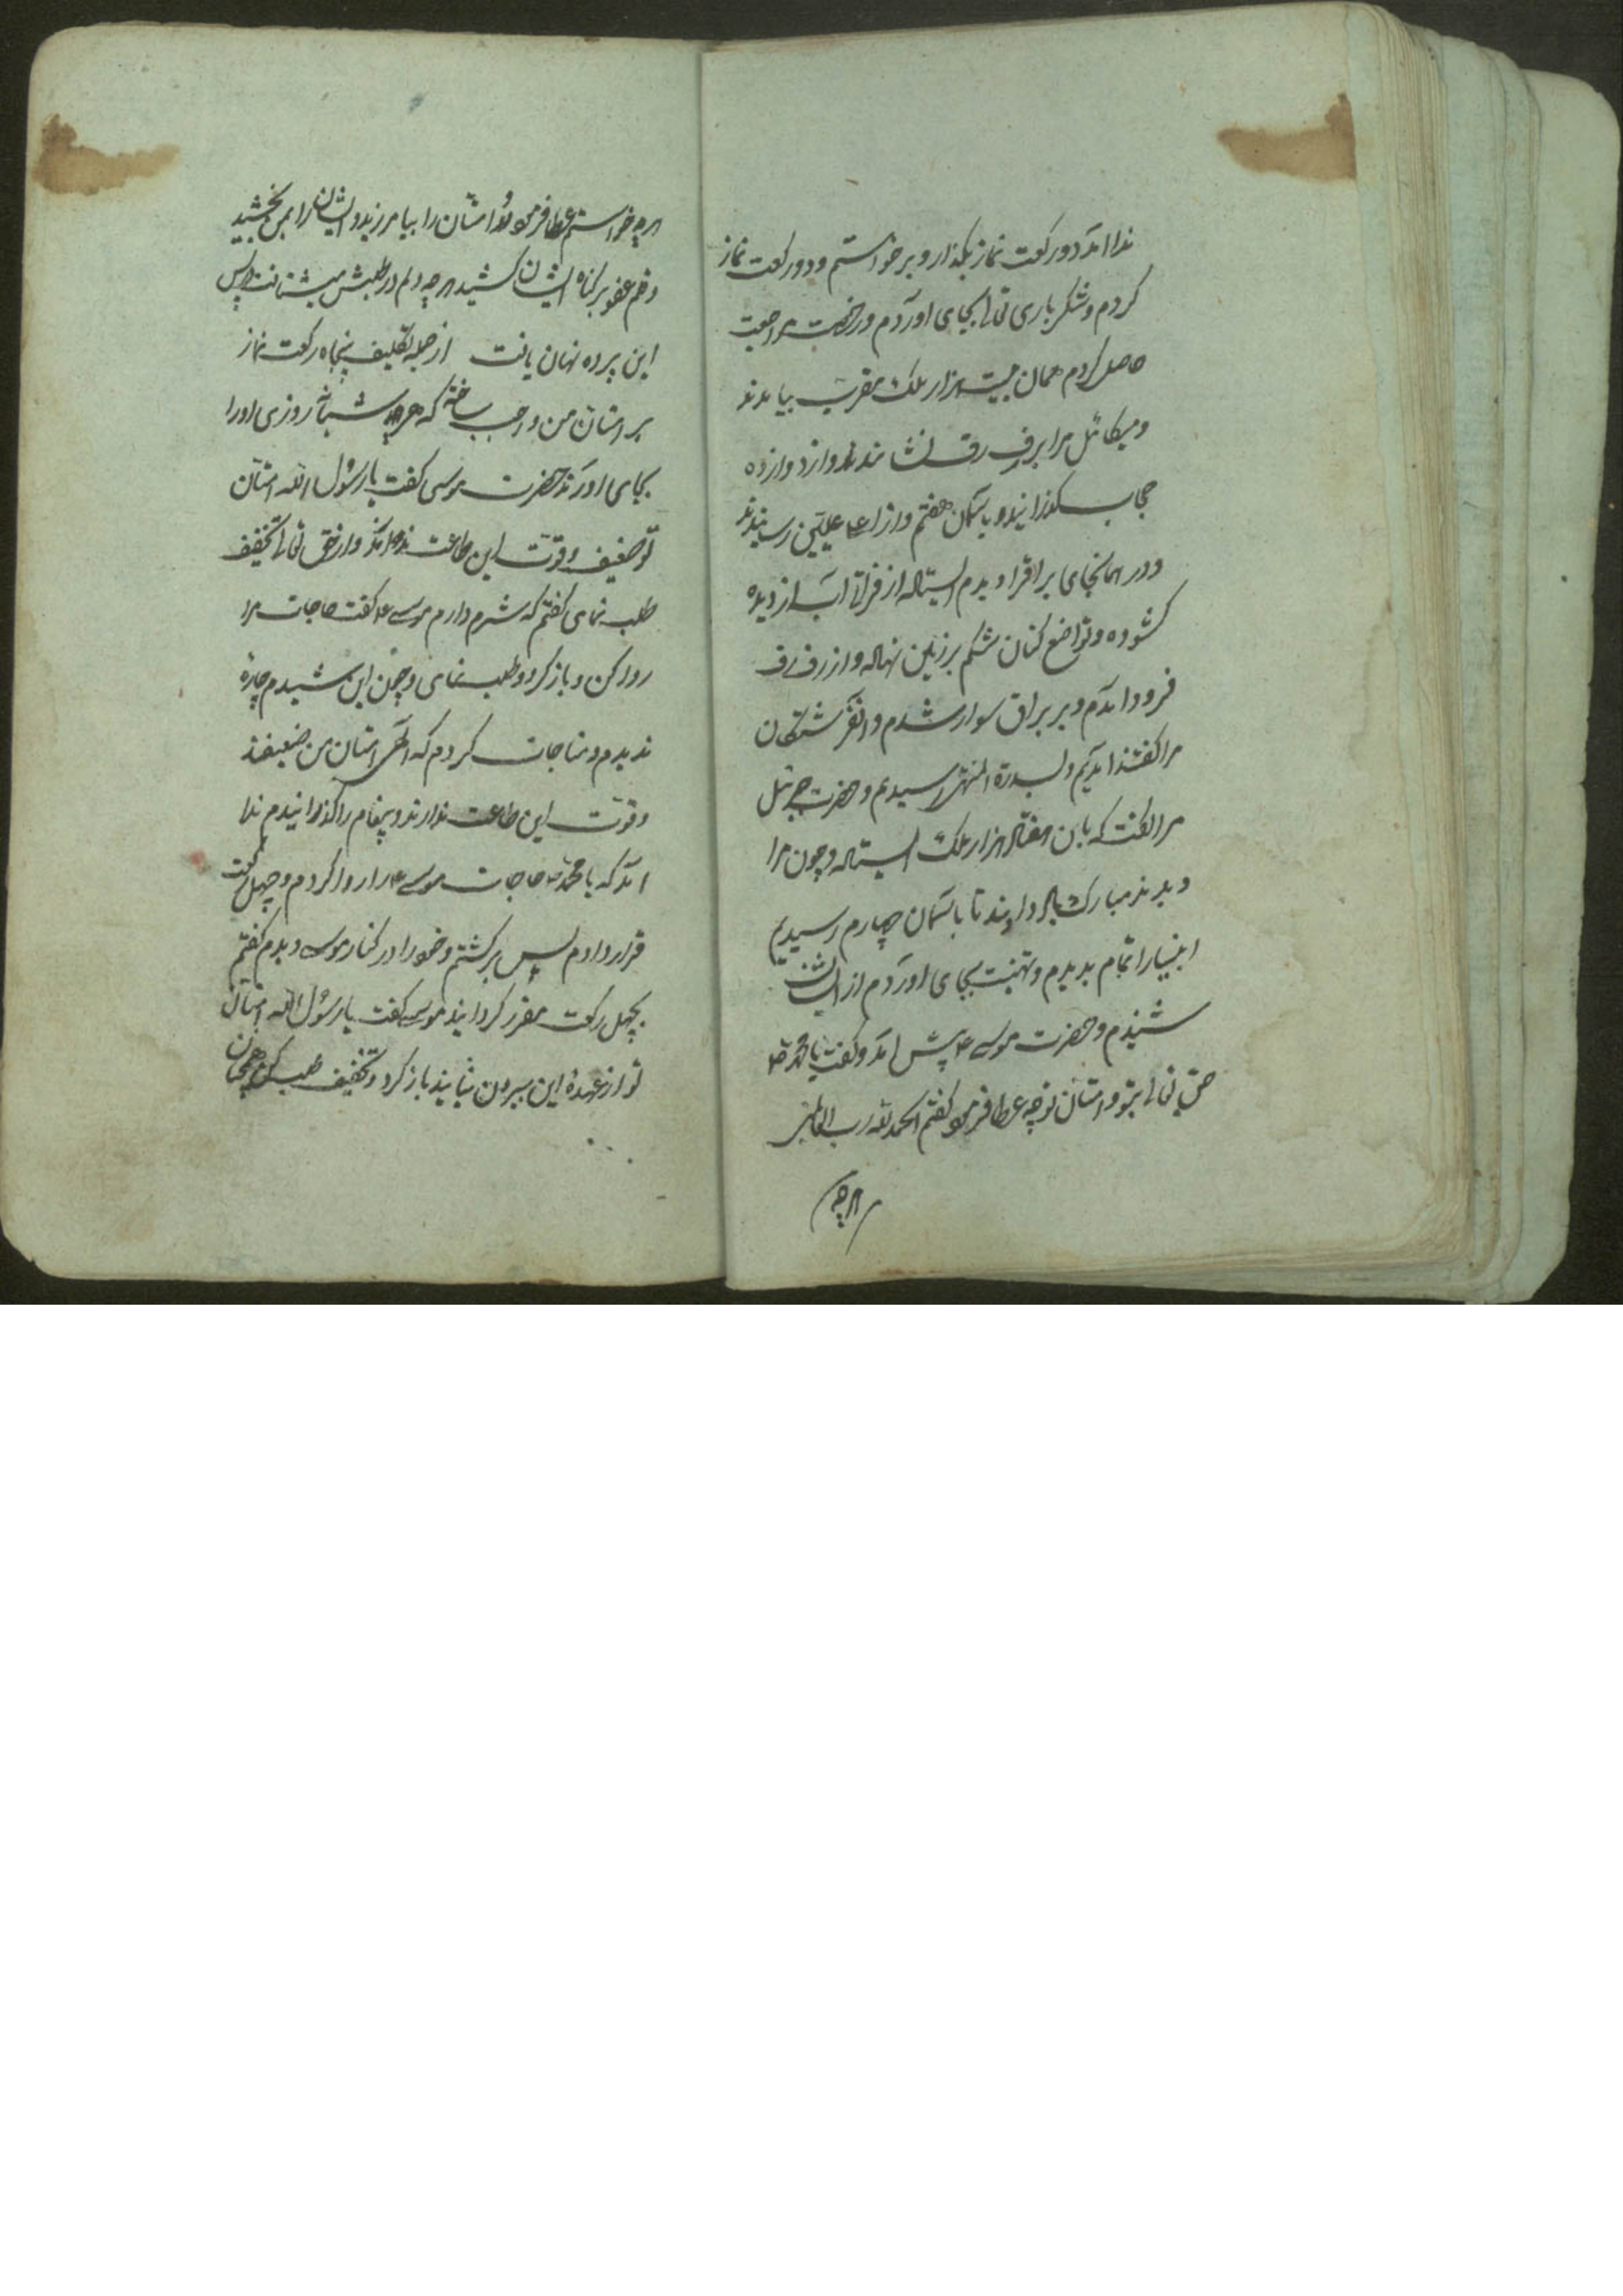 ندا آمد دو رکعت نماز بگذار و برخواستم و دو رکعت نماز
کردم و شکر باری تعالی بجای آوردم و رخصت مراجعت
حاصل کردم همان بیست هزار ملک مقرب بیامدند
و میکائل مرا برفرف نشاندند و از دوازده
حجاب بگذرانیدند و باسمان هفتم و از اعلی علیین رسیدند
و در همانجای براق را دیدم ایستاده از فراق آب از دیده
کشوده و تواضع کنان شکم بر زمین نهاده و از رفرف
فرود آمدم و بر براق سوار شدم و فرشتگان
مرا گفتند آمدیم و بسدرة المنتهی رسیدیم و حضرت جبرئل
مرا گفت که بان هفتاد هزار ملک ایستاده و چون مرا
دیدند مبارک باد دادند تا باسمان چهارم رسیدیم
انبیا را تمام بدیدم و تهنیت بجای آوردم از ایشان
شنیدم و حضرت موسی ع پیش آمد و گفت یا محمد ص
حق تعالی بتو و امتان تو چه عطا فرمود گفتم الحمد لله رب العالمین
هرچه
هرچه خواستم عطا فرمود و امتان را بیامرزید و ایشانرا بمن بخشید
رقم عفو بر گناه ایشان کشید هرچه دلم در طلبش میشتافت در پس
این پرده نهان یافت از جمله تکلیف پنجاه رکعت نماز
بر امتان من واجب ساخته که هر شبانروزی او را
بجای آورند حضرت موسی گفت یا رسول الله امتان
تو ضعیف و قوت این طاعت ندارند و از حق تعالی تخفیف
طلب نمای گفتم که شرم دارم موسی ع گفت حاجات مرا
روا کن و باز گرد و طلب نمای و چون این شنیدم چارهٔ
ندیدم و مناجات کردم که الهی امتان من ضعیفند
و قوت این طاعت ندارند و پیغام را گذرانیدم ندا
آمد که یا محمد ص حاجات موسی ع را روا کردم و چهل رکعت
قرار دادم پس برگشتم و خود را در کنار موسی دیدم گفتم
بچهل رکعت مقرر گردانید موسی گفت یا رسول الله امتان
تو از عهدهٔ این بیرون نیایند باز گرد و تخفیف طلب کن همچنان